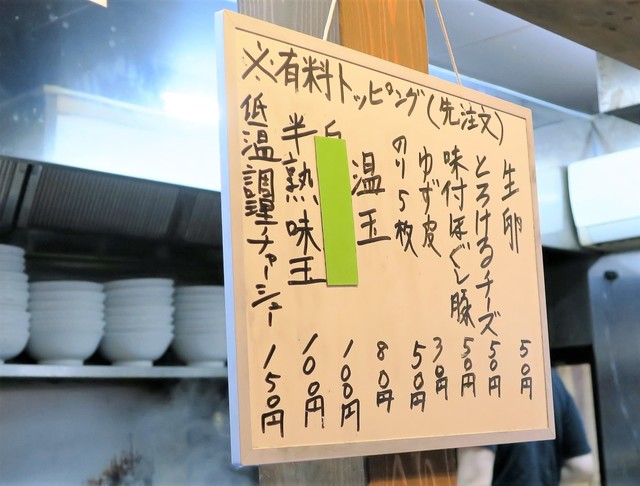 ※有料トッピング(先注文)
生卵 50円
とろけるチーズ 50円
味付ほぐし豚 50円
ゆず皮 30円
のり5枚 50円
温玉 80円
100円
半熟味玉 100円
低温調理チャーシュー 150円